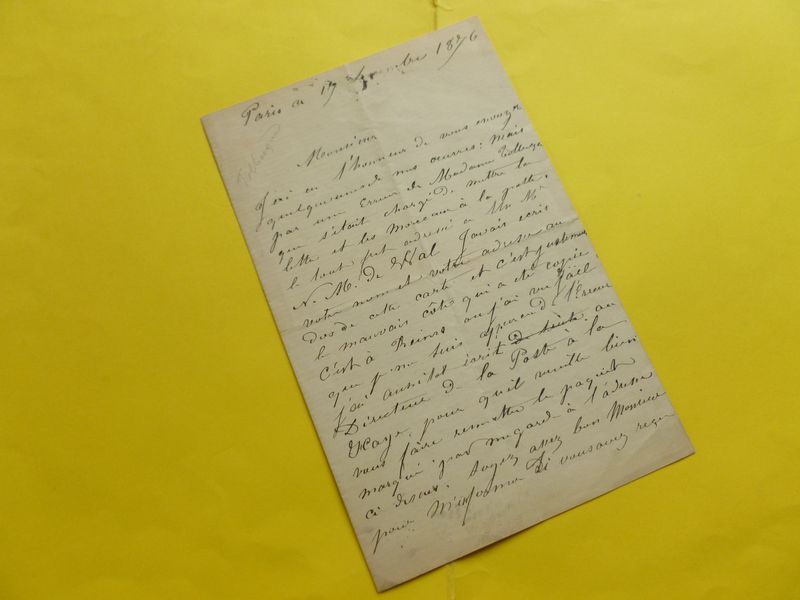 Paris ce 19 1876
Monsieur
J'ai eu l'honneur de vous envoyer
quelques unes de nos œuvres: mais
par une Erreur de Madame
qui s'était chargé de mettre la
lettre et les morceaux à la poste,
le tout fut adressé à Un Mr
N. M. de Hal J'avais ecris
votre nom et votre adresse au
dos de cette carte et c'est justement
le mauvais côté qui a été copié.
c'est à Reims ou j'ai vu
que je me suis aperçu de l'Erreur
j'ai aussitot écrit au
Directeur de la Poste à la
Haye, pour qu'il veuille bien
vous faire remettre le paquet
marqué par mégard à l'adresse
ci dessus. Soyez assez bon Monsieur
pour m'informer Si vous avez reçu